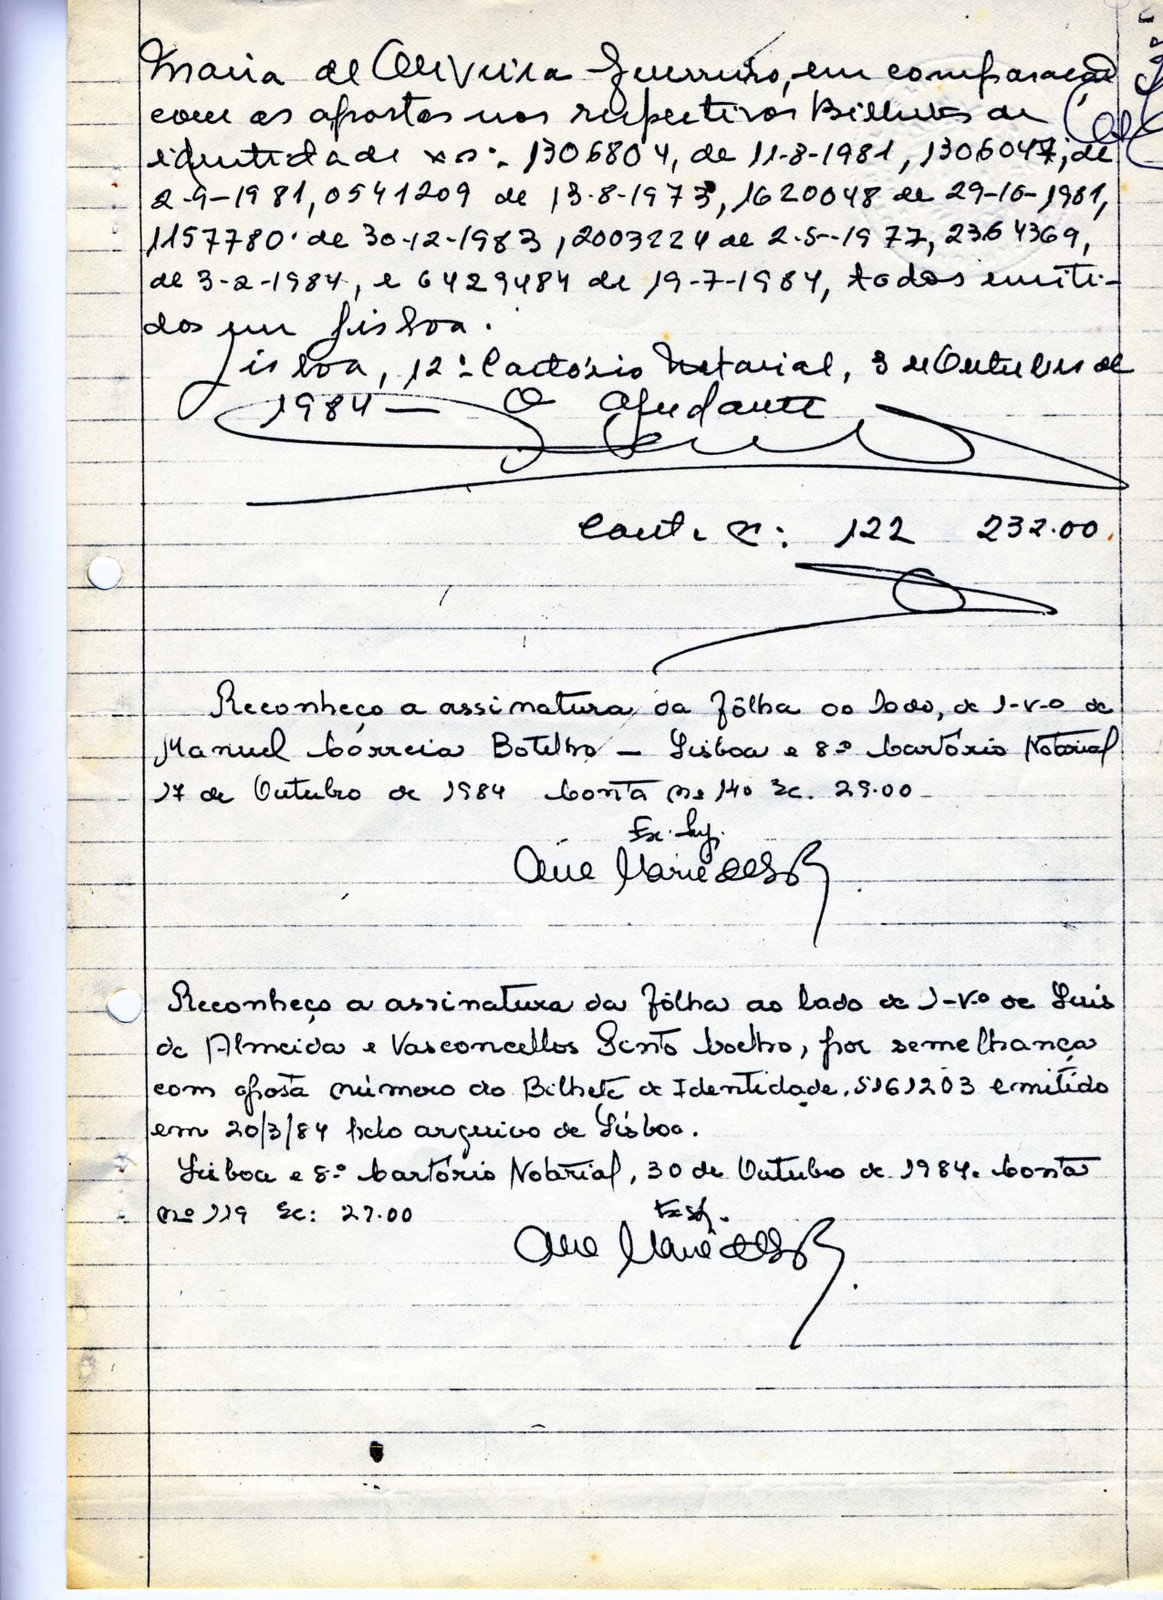 Maria de Oliveira Guerreiro, em comparação
com as apostas nos respectivos Bilhetes de
identidade nos: 1306804, de 11-8-1981, 1306047, de
2-9-1981, 0541209 de 13-8-1973, 1620048 de 29-10-1981,
1157780 de 30-12-1983, 2003224 de 2-5-1977, 2364369,
de 3-2-1984, e 6429484 de 19-7-1984, todos emiti-
dos em Lisboa.
Lisboa, 12º Cartório Notarial, 3 de Outubro de
1984 — O Ajudante
Cont. : 122 232.00
Reconheço a assinatura da fôlha ao lado, de 1-v.o de
Manuel Correia Botelho — Lisboa e 8.º Cartório Notarial
17 de Outubro de 1984 Conta nº 140 Sc. 29.00
Ana Maria
Reconheço a assinatura da fôlha ao lado de 1-v.o de Luís
de Almeida e Vasconcellos Pinto Coelho, por semelhança
com aposta número do Bilhete de Identidade, 5161203 emitido
em 20/3/84 pelo arquivo de Lisboa.
Lisboa e 8.º Cartório Notarial, 30 de Outubro de 1984. Conta
nº 119 Sc: 27.00
Ana Maria